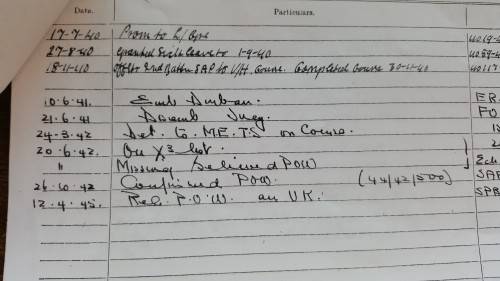 Date. Particulars.
17-7-40 Prom to L/Cpl 4019-4
27-8-40 Granted Sick leave to 1-9-40 4039-4
18-11-40 to 2nd Battn SAP to Course. Completed Course 30-11-40 40117
10.6.41. Emb Durban. ER
21.6.41 Disemb Suez. FO
24-3.42 Det. to M.E.T.S on Course. 15
20.6.42. On X3 list. 2
" Missing, believed POW Sch
26.10.42 Confirmed POW. (44/42/500) SAF
12.4.45. Rel. P.O.W. arr UK. SPB